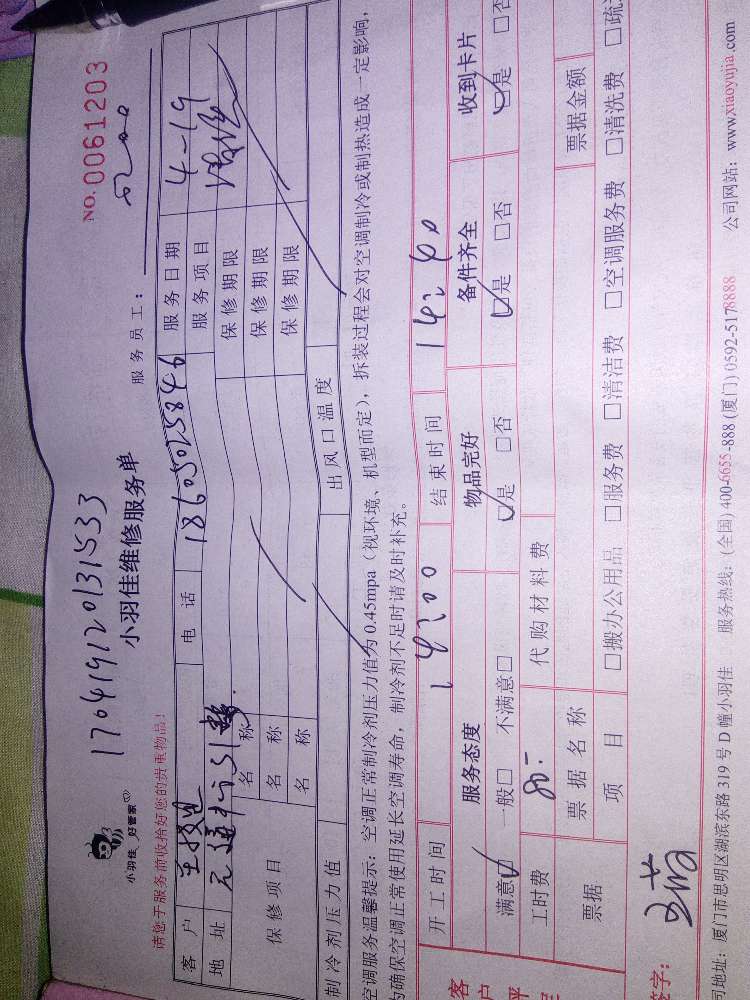 170419120131533
NO.0061203
小羽佳 好管家
小羽佳维修服务单
服务员工：
请您于服务前收拾好您的贵重物品！
客户 电话 18605025846 服务日期 4-19
地址 服务项目
保修项目 名称 保修期限
名称 保修期限
名称 保修期限
制冷剂压力值 出风口温度
空调服务温馨提示：空调正常制冷剂压力值为0.45mpa（视环境、机型而定），拆装过程会对空调制冷或制热造成一定影响，
为确保空调正常使用延长空调寿命，制冷剂不足时请及时补充。
开工时间 结束时间
客户评 服务态度 物品完好 备件齐全 收到卡片
满意□ 一般□ 不满意□ □是 □否 □是 □否 □是 □否
工时费 80- 代购材料费
票据 票据名称 票据金额
项目 □搬办公用品 □服务费 □清洁费 □空调服务费 □清洗费 □疏
签字：
司地址：厦门市思明区湖滨东路319号D幢小羽佳 服务热线：(全国)400-6655-888 (厦门)0592-5178888 公司网站：www.xiaoyujia.com